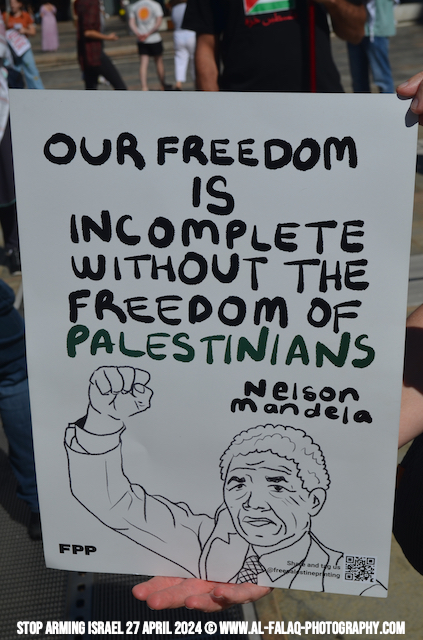 OUR FREEDOM
IS
INCOMPLETE
WITHOUT THE
FREEDOM OF
PALESTINIANS
Nelson
mandela
FPP
Share and tag us
@freepalestineprinting
STOP ARMING ISRAEL 27 APRIL 2024 © WWW.AL-FALAQ-PHOTOGRAPHY.COM